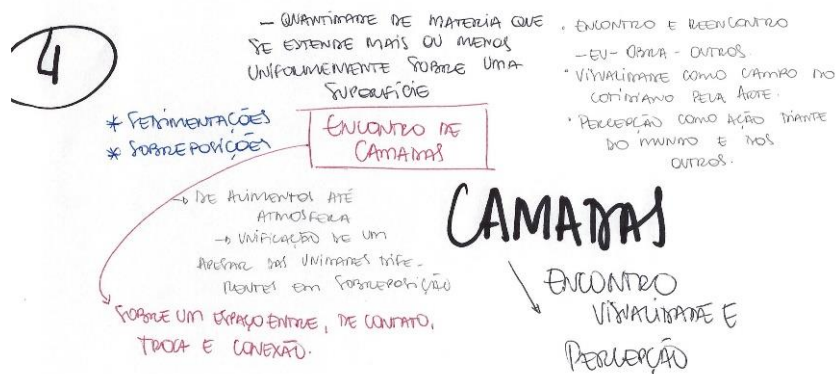 4
— QUANTIDADE DE MATERIA QUE
SE ESTENDE MAIS OU MENOS
UNIFORMEMENTE SOBRE UMA
SUPERFÍCIE
* SEDIMENTAÇÕES
* SOBREPOSIÇÕES
ENCONTRO DE
CAMADAS
→ DE ALIMENTOS ATÉ
ATMOSFERA
→ UNIFICAÇÃO DE UM
APESAR DAS UNIDADES DIFE-
RENTES EM SOBREPOSIÇÃO
SOBRE UM ESPAÇO ENTRE, DE CONTATO,
TROCA E CONEXÃO.
• ENCONTRO E REENCONTRO
— EU - OBRA - OUTROS.
• VISUALIDADE COMO CAMPO DO
COTIDIANO PELA ARTE.
• PERCEPÇÃO COMO AÇÃO DIANTE
DO MUNDO E DOS
OUTROS.
CAMADAS
ENCONTRO
VISUALIDADE E
PERCEPÇÃO